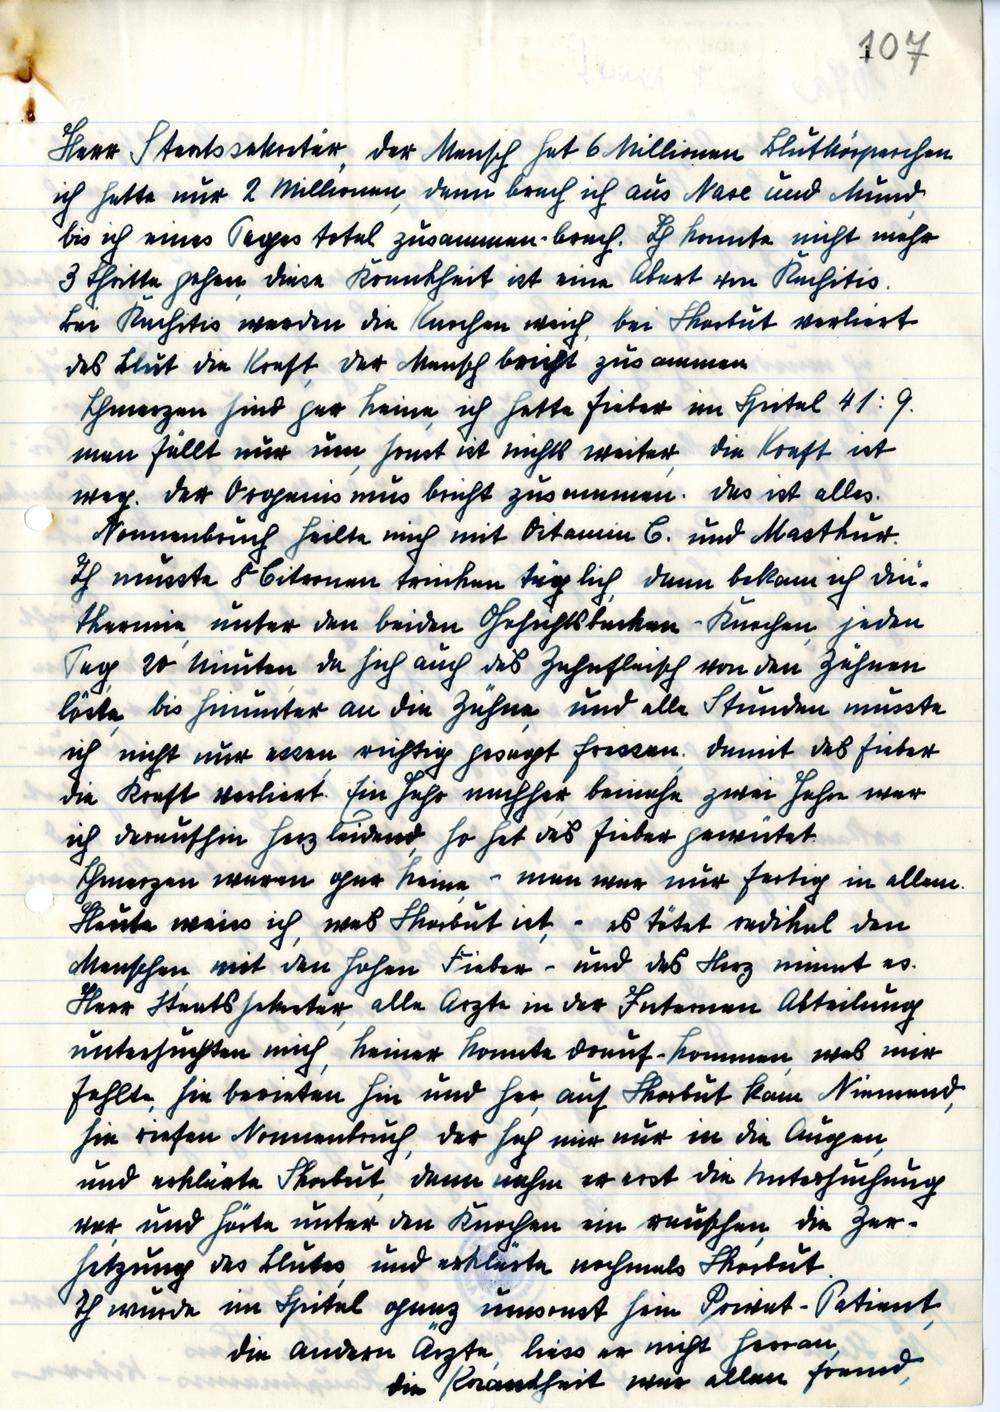 107
Herr Staatssekretär, der Mensch hat 6 Millionen Blutkörperchen
ich hatte nur 2 Millionen, dann brach ich aus Nase und Mund
bis ich eines Tages total zusammen-brach. Ich konnte nicht mehr
3 Schritte gehen, diese Krankheit ist eine Abart von Rachitis.
Bei Rachitis werden die Knochen weich, bei Skorbut verliert
das Blut die Kraft, der Mensch bricht zusammen
Schmerzen sind gar keine, ich hatte Fieber im Spital 41:9.
man fällt nur um, sonst ist nichts weiter, die Kraft ist
weg. der Organismus bricht zusammen. das ist alles.
Nonnenbruch heilte mich mit Vitamin C. und Mastkur.
Ich musste 8 Citronen trinken täglich, dann bekam ich dia-
thermie, unter den beiden Gesichtsbacken-Knochen, jeden
Tag 20 Minuten, da sich auch das Zahnfleisch von den Zähnen
löste, bis hinunter an die Zähne, und alle Stunden musste
ich, nicht nur essen, richtig gesagt fressen, damit das Fieber
die Kraft verliert. Ein Jahr nachher, beinahe zwei Jahre war
ich daraufhin herzleidend, so hat das Fieber gewütet.
Schmerzen waren gar keine, - man war nur fertig in allem.
Heute weiss ich, was Skorbut ist, - es tötet radikal den
Menschen, mit den hohen Fieber - und das Herz nimmt es.
Herr Staatssekretär, alle Ärzte in der Internen Abteilung
untersuchten mich, keiner konnte drauf-kommen, was mir
fehlte, sie berieten hin und her, auf Skorbut kam Niemand,
sie riefen Nonnenbruch, der sah mir nur in die Augen,
und erklärte Skorbut, dann nahm er erst die Untersuchung
vor, und hörte unter den Knochen ein rauschen, die Zer-
setzung des Blutes, und erklärte nochmals Skorbut.
Ich wurde im Spital ganz umsonst sein Privat-Patient,
die andern Ärzte, liess er nicht heran,
die Krankheit war allen fremd,